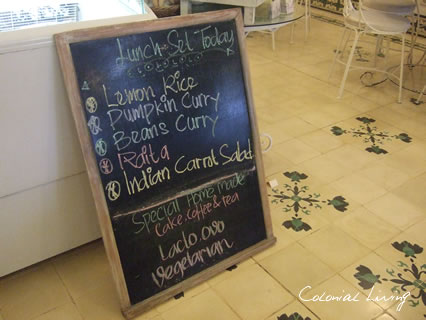 Lunch Set Today
Lemon Rice
Pumpkin Curry
Beans Curry
Raita
Indian Carrot Salad
Special Homemade
Cake, coffee & tea
Lacto.ovo
Vegetarian
Colonial Living